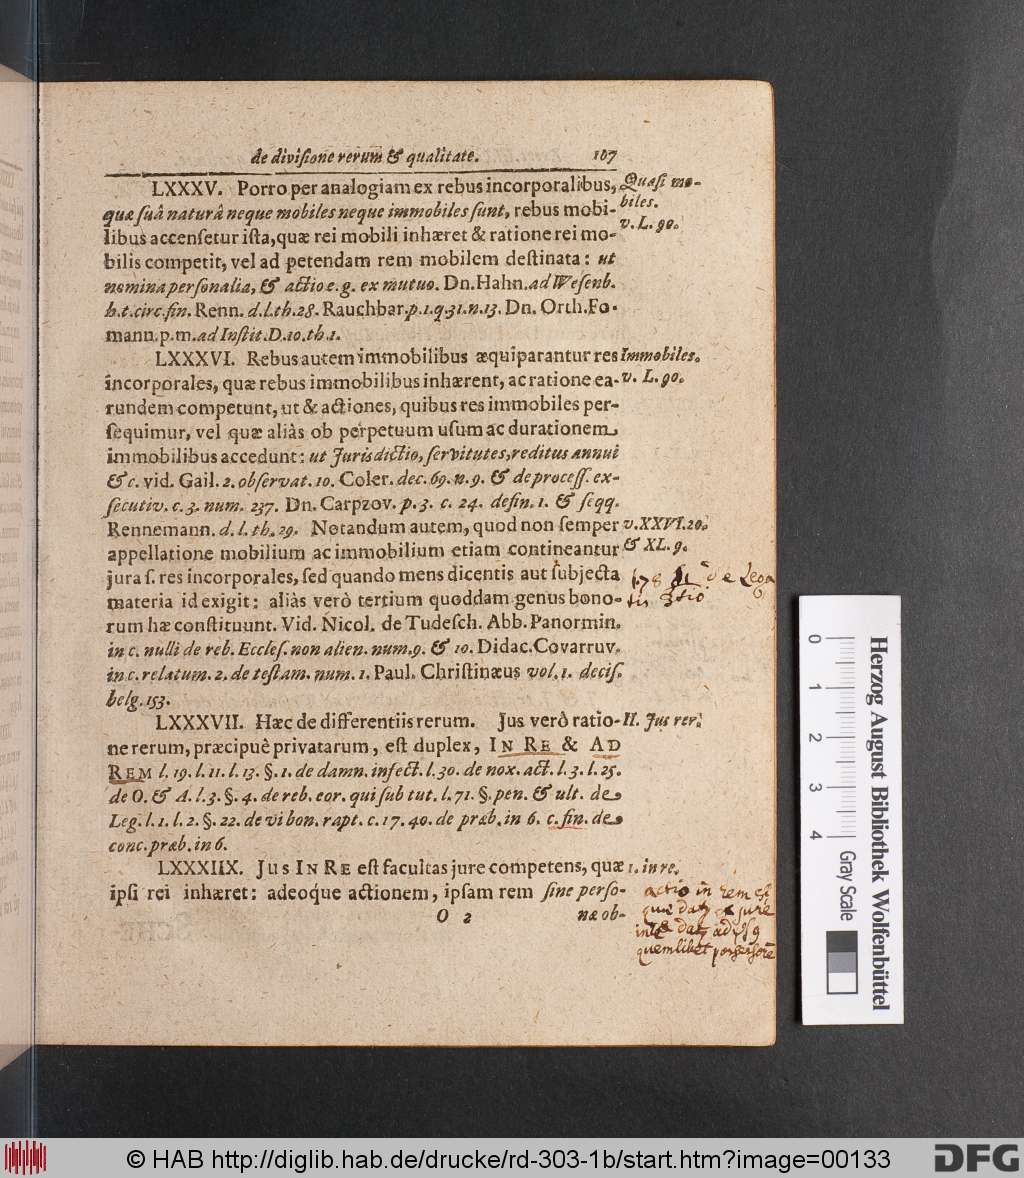 de diviſione rerum & qualitate. 107
LXXXV. Porro per analogiam ex rebus incorporalibus, Quaſi mo-
quæ ſuâ naturâ neque mobiles neque immobiles ſunt, rebus mobi- biles.
libus accenſetur iſta, quæ rei mobili inhæret & ratione rei mo- v. L. 90.
bilis competit, vel ad petendam rem mobilem deſtinata: ut
nomina perſonalia, & actio e. g. ex mutuo. Dn. Hahn. ad Weſenb.
h. t. circ. fin. Renn. d. l. th. 28. Rauchbar. p. 1. q. 31. n. 13. Dn. Orth. Fo-
mann. p. m. ad Inſtit. D. 10. th. 1.
LXXXVI. Rebus autem immobilibus æquiparantur res Immobiles.
incorporales, quæ rebus immobilibus inhærent, ac ratione ea- v. L. 90.
rundem competunt, ut & actiones, quibus res immobiles per-
ſequimur, vel quæ aliàs ob perpetuum uſum ac durationem
immobilibus accedunt: ut Jurisdictio, ſervitutes, reditus annui
& c. vid. Gail. 2. obſervat. 10. Coler. dec. 69. n. 9. & de proceſſ. ex-
ſecutiv. c. 3. num. 237. Dn. Carpzov. p. 3. c. 24. defin. 1. & ſeqq.
Rennemann. d. l. th. 29. Notandum autem, quod non ſemper v. XXVI. 20.
appellatione mobilium ac immobilium etiam contineantur & XL. 9.
jura ſ. res incorporales, ſed quando mens dicentis aut ſubjecta l. 78 de Lega
materia id exigit: aliàs verò tertium quoddam genus bono- tis 3tio
rum hæ conſtituunt. Vid. Nicol. de Tudeſch. Abb. Panormin.
in c. nulli de reb. Eccleſ. non alien. num. 9. & 10. Didac. Covarruv.
in c. relatum. 2. de teſtam. num. 1. Paul. Chriſtinæus vol. 1. deciſ.
belg. 153.
LXXXVII. Hæc de differentiis rerum. Jus verò ratio- II. Jus rer.
ne rerum, præcipuè privatarum, eſt duplex, IN RE & AD
REM l. 19. l. 11. l. 13. §. 1. de damn. infect. l. 30. de nox. act. l. 3. l. 25.
de O. & A. l. 3. §. 4. de reb. eor. qui ſub tut. l. 71. §. pen. & ult. de
Leg. l. 1. l. 2. §. 22. de vi bon. rapt. c. 17. 40. de præb. in 6. c. fin. de
conc. præb. in 6.
LXXXIIX. Jus IN RE eſt facultas jure competens, quæ 1. in re.
ipſi rei inhæret: adeoque actionem, ipſam rem ſine perſo- actio in rem eſt
O 2 næ ob- quæ datʒ jure
in re datʒ adverſ9
quemlibet poſſeſſorē
0
1
2
3
4
Gray Scale
Herzog August Bibliothek Wolfenbüttel
© HAB http://diglib.hab.de/drucke/rd-303-1b/start.htm?image=00133
DFG